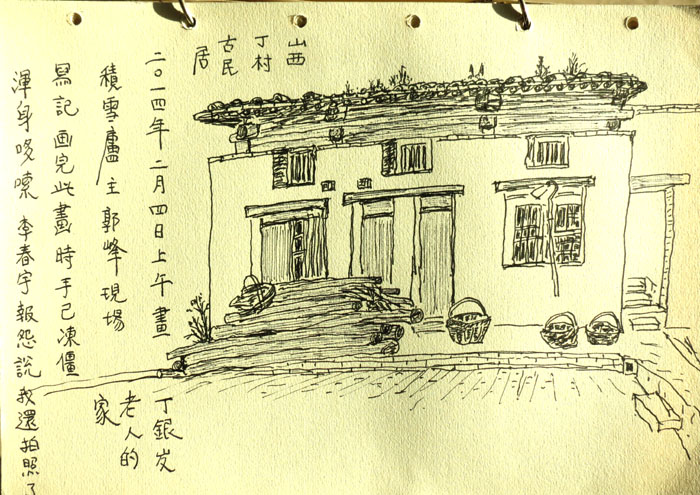 山西
丁村
古民
居
二〇一四年二月四日上午畫
積雪廬主郭峰現場
寫記画完此畫時手已凍僵
渾身哆嗦李春宇報怨說我還拍照了
丁銀发
老人的
家